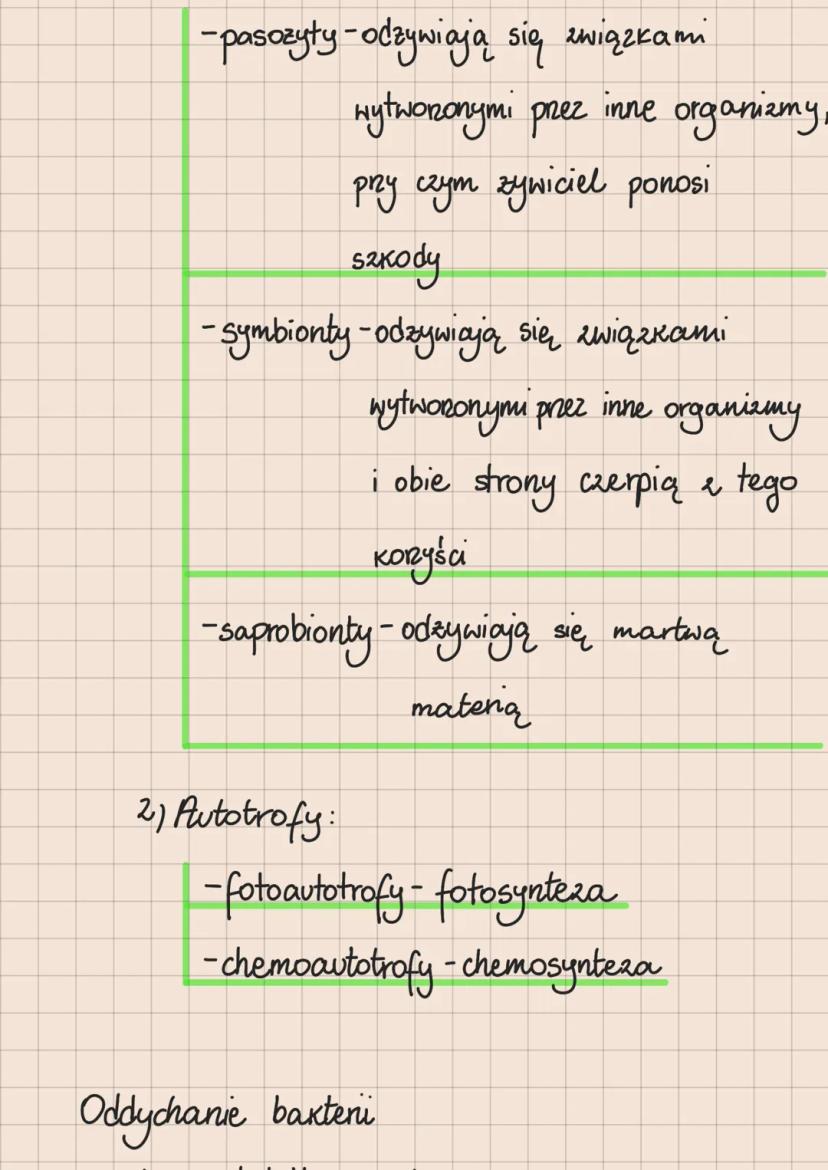 -pasożyty-odżywiają się związkami
wytworzonymi przez inne organizmy,
przy czym żywiciel ponosi
szkody
-symbionty-odżywiają się związkami
wytworzonymi przez inne organizmy
i obie strony czerpią z tego
korzyści
-saprobionty-odżywiają się martwą
materią
2) Autotrofy:
-fotoautotrofy-fotosynteza
-chemoautotrofy-chemosynteza
Oddychanie bakterii